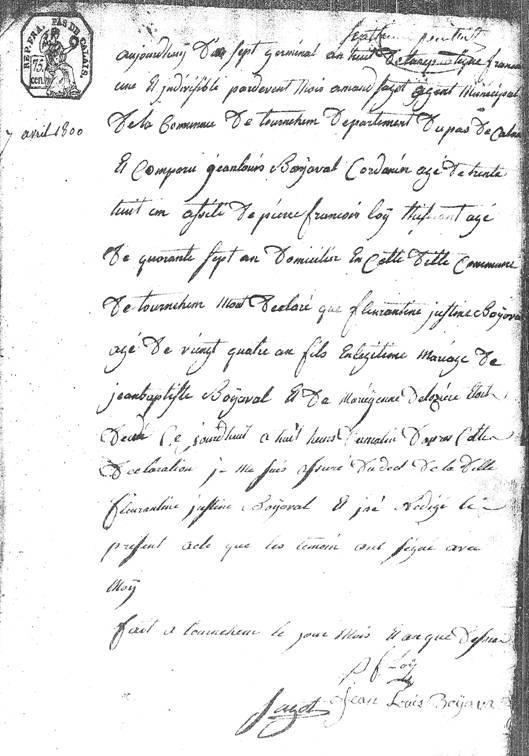 REP. FRA. PAS DE CALAIS.
75
cen.
7 avril 1800
aujourdhuy Dix sept germinal an huit De la republique francai
une Et jndivisible pardevant Mois amand fazot agent Municipal
De la Commune De tournehem Departement Dupas De Calais
Et Comparu jeanlouis Boyaval Cordonier agé De trente
huit an assisté De pierre francois loÿ agé
De quarante sept an Domicilier En Cette Ditte Commune
De tournehem Mont Declaré que fleurantine justine Boÿava
agé De vieingt quatre an fils Enlegitime Mariage De
jeanbaptiste Boÿaval Et De Etait
Decedé Ce jourdhuit a huit heurs Dumatin Dapres Cette
Declaration je me suis assuré Dudect De la Ditte
fleurantine justine Boÿaval Et jaé Redigé le
present acte que les temoin ont signé avec
Moÿ
fait a tournehem le jour Mois Et an que Dessus
p f Loÿ
fazot Jean Louis Boÿava